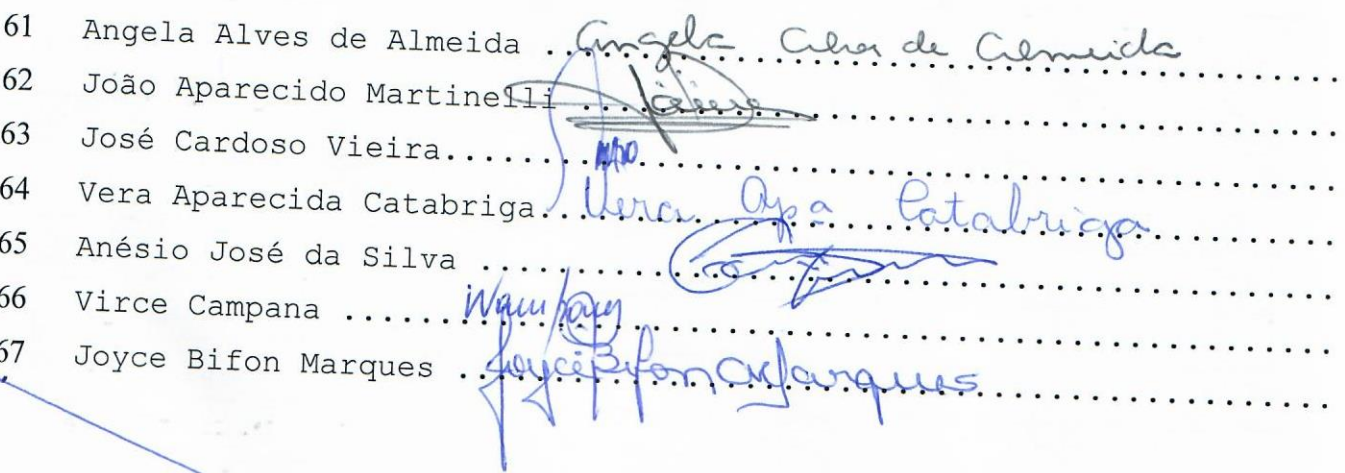 61 Angela Alves de Almeida ..Angela Alves de Almeida..........
62 João Aparecido Martinelli ..........
63 José Cardoso Vieira..........
64 Vera Aparecida Catabriga..Vera Apª Catabriga..........
65 Anésio José da Silva ..........
66 Virce Campana ..........
67 Joyce Bifon Marques ..Joyce Bifon Marques..........